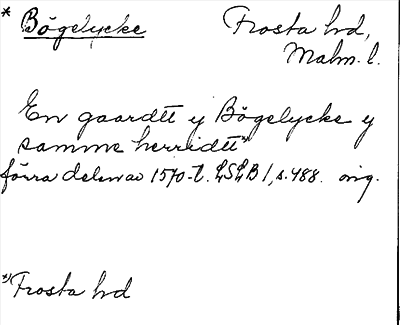 * Bögelycke Frosta hd,
Malm. l.
En gaardtt y Bögelycke y
samme herridtt *)
förra delen av 1570-t. LSLB 1, s. 488. orig.
*) Frosta hd